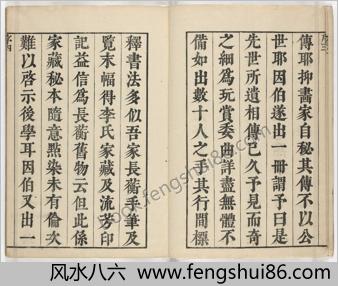 序三
傳耶抑畫家自秘其傳不以公
世耶因伯遂出一冊謂予曰是
先世所遺相傳已久予見而奇
之細爲玩賞委曲詳盡無體不
備如出數十人之手其行間標
釋書法多似吾家長蘅手筆及
覽末幅得李氏家藏及流芳印
記益信爲長蘅舊物云但此係
家藏秘本隨意點染未有倫次
難以啓示後學耳因伯又出一
序四
风水八六:www.fengshui86.com